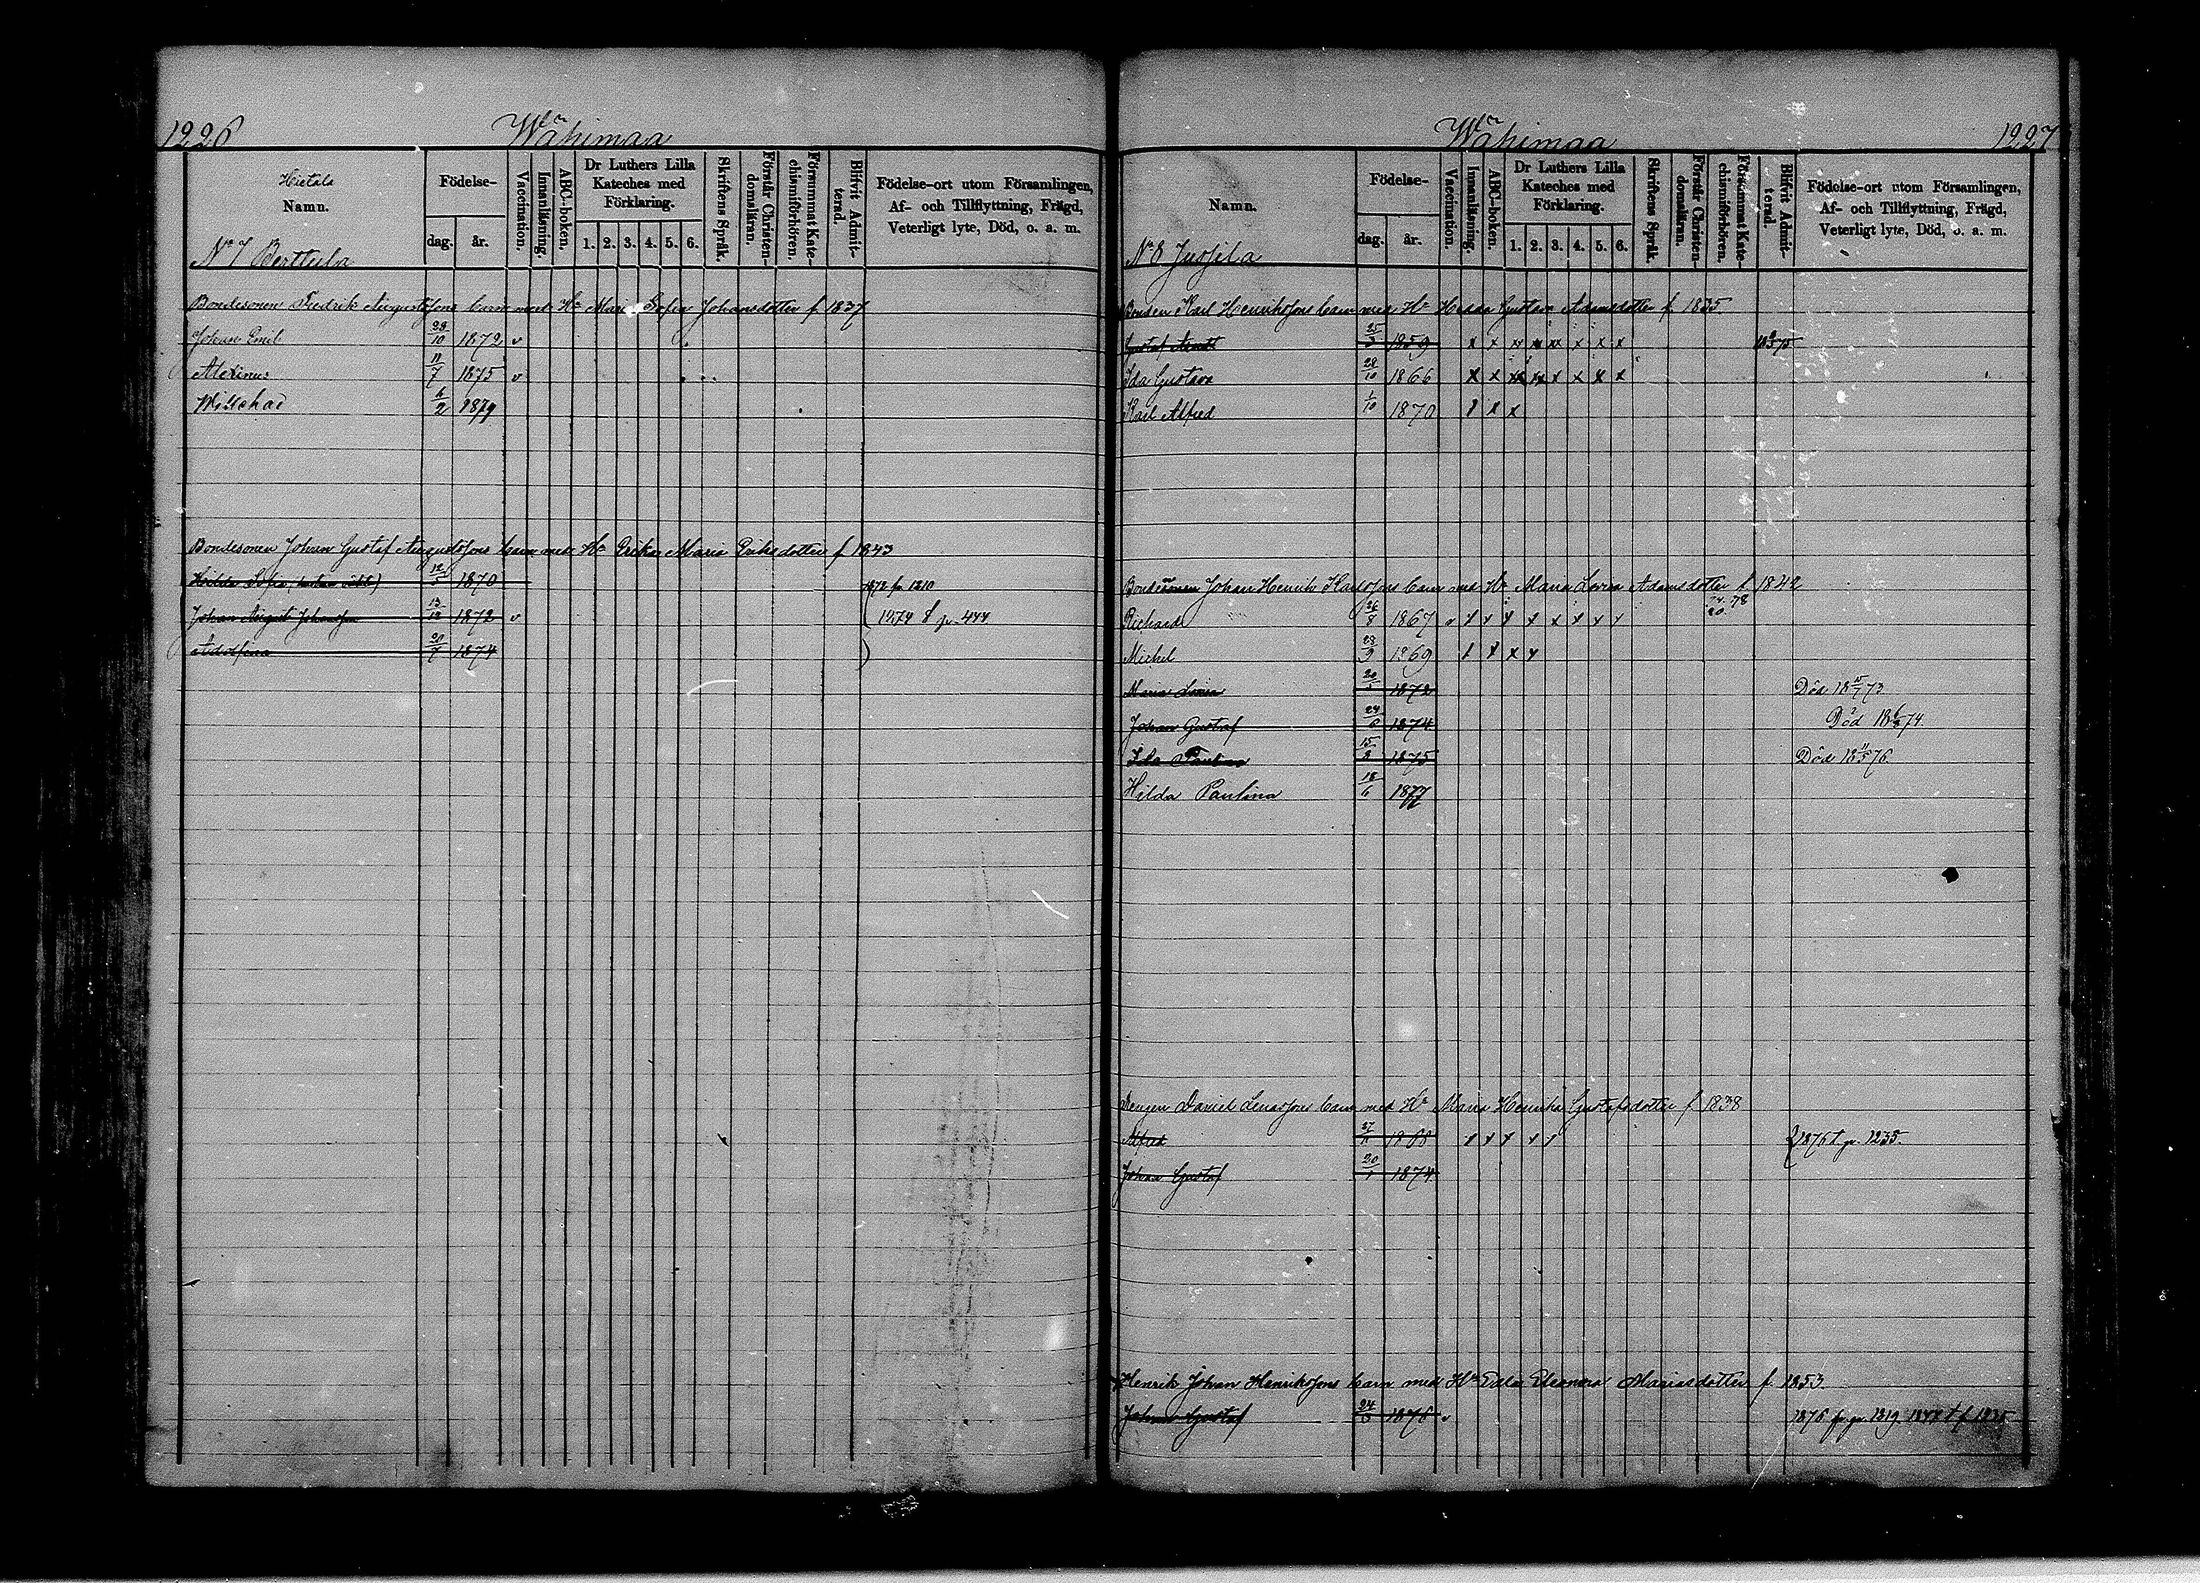 1226 Wähimaa
Hietala
Namn.
Födelse-
dag. år.
Vaccination.
Innanläsning.
ABC-boken.
Dr Luthers Lilla Kateches med Förklaring.
1. 2. 3. 4. 5. 6.
Skriftens Språk.
Förstår Christendomsläran.
Försummat Katechismiförhören.
Blifvit Admitterad.
Födelse-ort utom Församlingen,
Af- och Tillflyttning, Frägd,
Veterligt lyte, Död, o. a. m.
No 7 Berttula
Bondesonen Fredrik Augustssons barn med Ha Maria Sofia Johansdotter f 1837
Johan Emil 29/10 1872 v
Alexinus 11/7 1875 v
Willehad 6/2 1879
Bondesonen Johan Gustaf Augustssons barn med Ha Erika Maria Eriksdotter f 1843
Hilda Sofia 12/5 1870 1872 fr 1210
Johan August Johansson 13/12 1872 v 1874 p. 444
Adolfina 20/7 1874
Wähimaa 1227
Namn.
Födelse-
dag. år.
Vaccination.
Innanläsning.
ABC-boken.
Dr Luthers Lilla Kateches med Förklaring.
1. 2. 3. 4. 5. 6.
Skriftens Språk.
Förstår Christendomsläran.
Försummat Katechismiförhören.
Blifvit Admitterad.
Födelse-ort utom Församlingen,
Af- och Tillflyttning, Frägd,
Veterligt lyte, Död, o. a. m.
No 8 Jussila
Bonden Karl Henrikssons barn med Ha Gustava Adamsdotter f. 1835.
Gustaf 1859 x x x x x x x x
Ida Gustava 28/10 1866 x x x x x x x x
Karl Alfred 1/10 1870 x x x
Bondesonen Johan Henrik Karlssons barn med Ha Maria Lovisa Adamsdotter f. 1842
Richard 26/8 1867 v x x x x x x x x 74. 78 80.
Michel 23/9 1869 x x x x
Maria Lovisa 20 1872 Död 18 15/7 73
Johan Gustaf 24/6 1874 Död 18 74
Ida Paulina 15/3 1875 Död 18 11/5 76
Hilda Paulina 18/6 1877
Drengen Daniel barn med Ha Maria Henrika Gustafsdotter f 1838
Alfred 27 1868 x x x x x 1876 t p. 1235.
Johan Gustaf 20/1 1874
Henrik Johan Henrikssons barn med Ha Edla Eleonora Mariasdotter f. 1853.
Johan Gustaf 24 1876 v 1876 fr p. 1219.